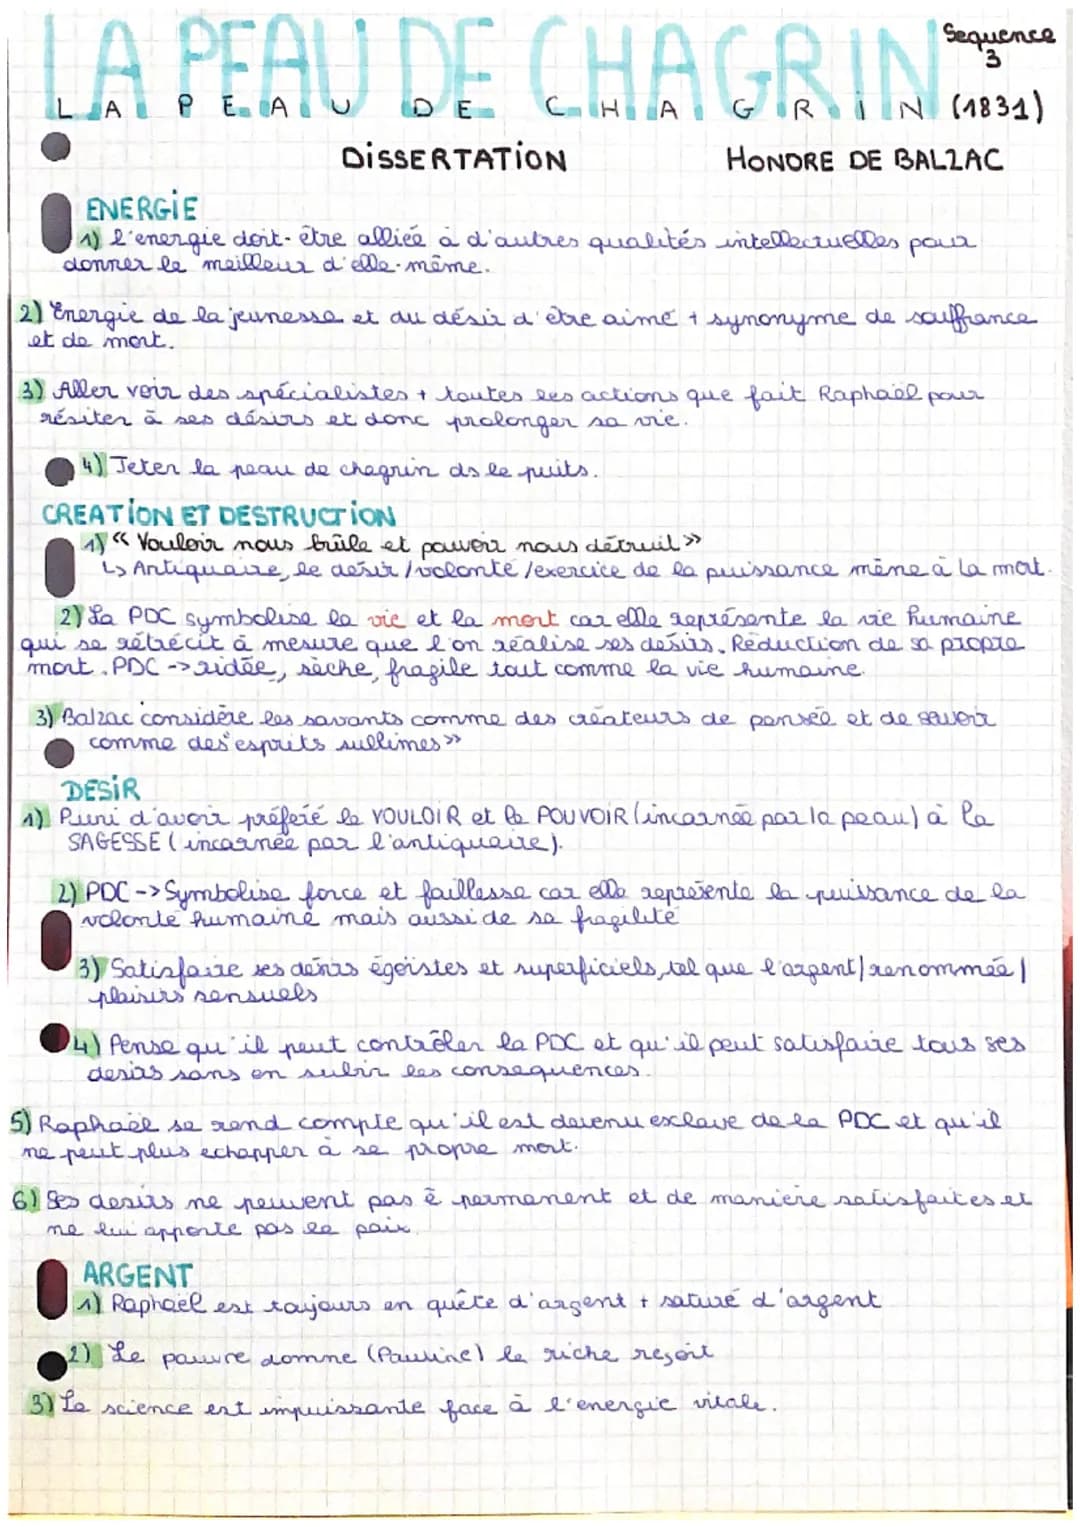 LA PEAU DE CHAGRIN
Sequence
3
LA PEAU DE CHAGRIN (1831)
DISSERTATION
HONORE DE BALZAC
ENERGIE
1) l'energie doit-être alliée à d'autres qualités intellectuelles pour
donner le meilleur d'elle-même.
2) Energie de la jeunesse et du désir d'être aimé + synonyme de souffrance
et de mort.
3) Aller voir des spécialistes + toutes les actions que fait Raphaël pour
résiter à ses désirs et donc prolonger sa vie.
4) Jeter la peau de chagrin ds le puits.
CREATION ET DESTRUCTION
1) « Vouloir nous brûle et pouvoir nous détruit »
↳ Antiquaire, le désir / volonté / exercice de la puissance mène à la mort.
2) La PDC symbolise la vie et la mort car elle représente la vie humaine
qui se rétrécit à mesure que l'on réalise ses désirs. Réduction de sa propre
mort. PDC -> ridée, sèche, fragile tout comme la vie humaine.
3) Balzac considère les savants comme des créateurs de pensée et de savoir
comme des "esprits sublimes »
DESIR
1) Puni d'avoir préferé le VOULOIR et le POUVOIR (incarnée par la peau) à la
SAGESSE (incarnée par l'antiquaire).
2) PDC -> Symbolise force et faillesse car elle représente la puissance de la
volonté humaine mais aussi de sa fragilité
3) Satisfaire ses désirs égoistes et superficiels, tel que l'argent / renommée /
plaisirs sensuels
4) Pense qu'il peut contrôler la PDC et qu'il peut satisfaire tous ses
desirs sans en subir les consequences.
5) Raphaël se rend compte qu'il est devenu exclave de la PDC et qu'il
ne peut plus echapper à sa propre mort.
6) Ses desirs ne peuvent pas ê permanent et de manière satisfaites et
ne lui apporte pas la paix.
ARGENT
1) Raphaël est toujours en quête d'argent + saturé d'argent
2) Le pauvre domne (Pauline) le riche reçoit
3) La science est impuissante face à l'energie vitale.